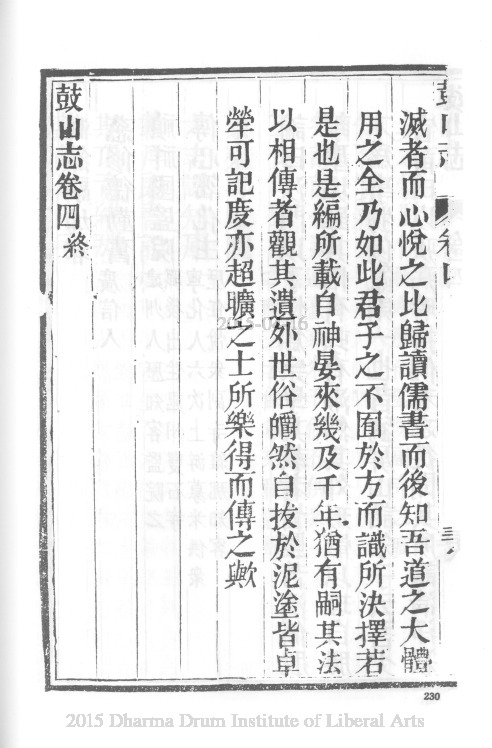 鼓山志
卷四
滅者而心悅之比歸讀儒書而後知吾道之大體
用之全乃如此君子之不囿於方而識所決擇若
是也是編所載自神晏來幾及千年猶有嗣其法
以相傳者觀其遺外世俗皭然自拔於泥塗皆卓
犖可記度亦超曠之士所樂得而傳之歟
鼓山志卷四終
230
2015 Dharma Drum Institute of Liberal Arts